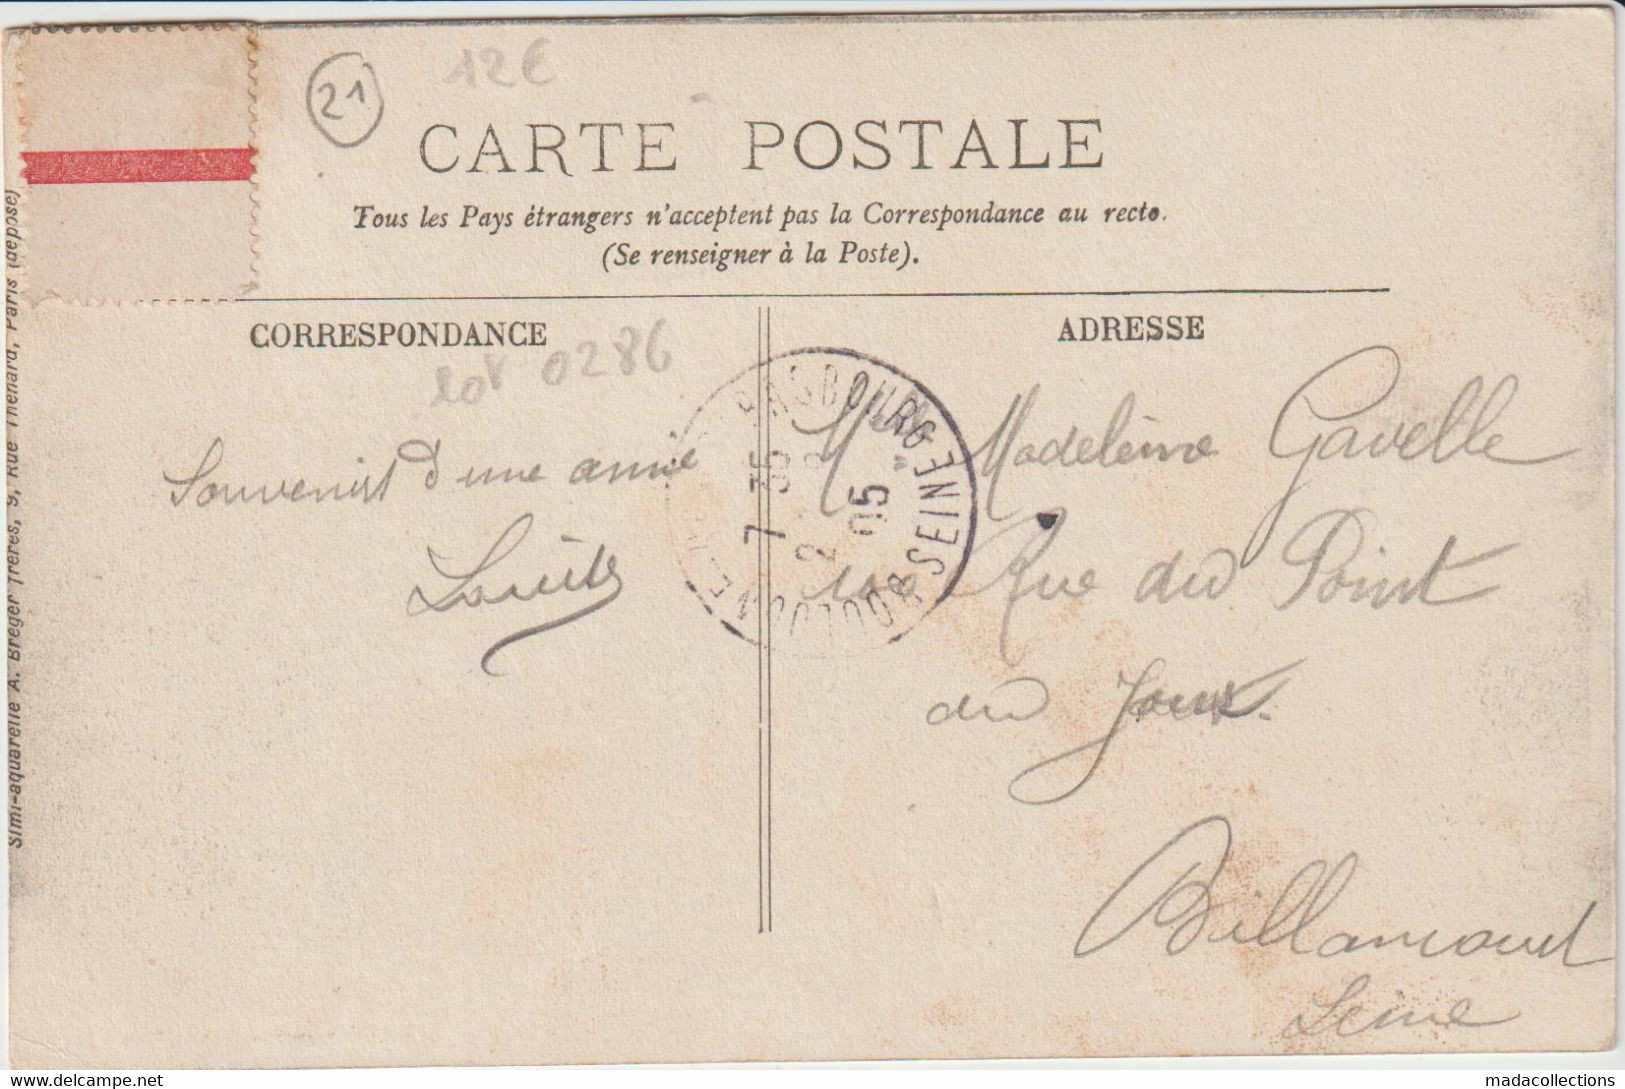 21
12€
CARTE POSTALE
Tous les Pays étrangers n'acceptent pas la Correspondance au recto.
(Se renseigner à la Poste).
CORRESPONDANCE
lot 0286
Souvenir d'une amie
ADRESSE
Melle Madeleine Gavelle
Rue du Point
du Jour.
Billancourt
Seine
BOULOGNE SEINE
7 35
2
05
Simi-aquarelle A. Breger frères, 9, Rue Thénard, Paris (déposé)
madacollections